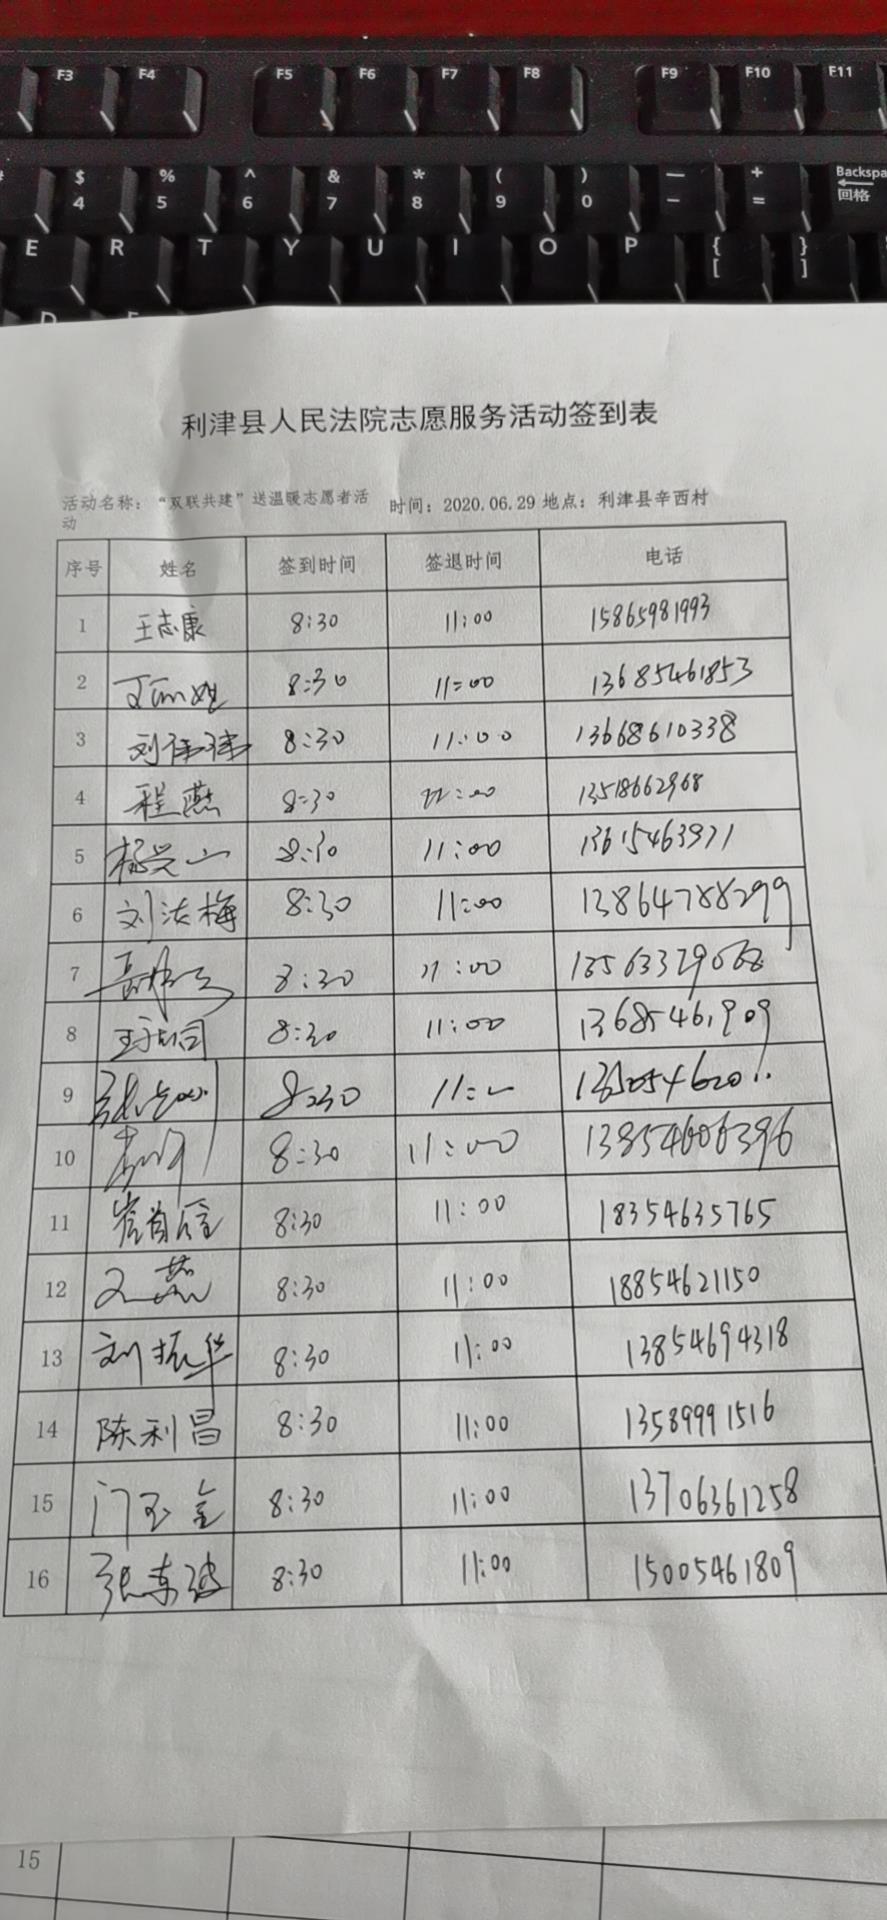 F3 F4 F5 F6 F7 F8 F9 F10 F11
$ % ^ & * ( ) — + Backspa
4 5 6 7 8 9 0 - = 回格
E R T Y U I O P { }
[ ]
利津县人民法院志愿服务活动签到表
活动名称：“双联共建”送温暖志愿者活动 时间：2020.06.29 地点：利津县辛西村
序号 姓名 签到时间 签退时间 电话
1 王志康 8:30 11:00 15865981993
2 8:30 11:00 13685461853
3 刘伟伟 8:30 11:00 13668610338
4 程燕 8:30 11:00 13518662968
5 杨兴山 8:30 11:00
6 刘洪梅 8:30 11:00 13864788299
7 8:30 11:00 13563379068
8 8:30 11:00 13685461909
9 8:30
10 8:30 11:00 13854606396
11 8:30 11:00 18354635765
12 8:30 11:00 18854621150
13 刘振华 8:30 11:00 13854694318
14 陈利昌 8:30 11:00 13589991516
15 门玉金 8:30 11:00 13706361258
16 张东波 8:30 11:00 15005461809
15